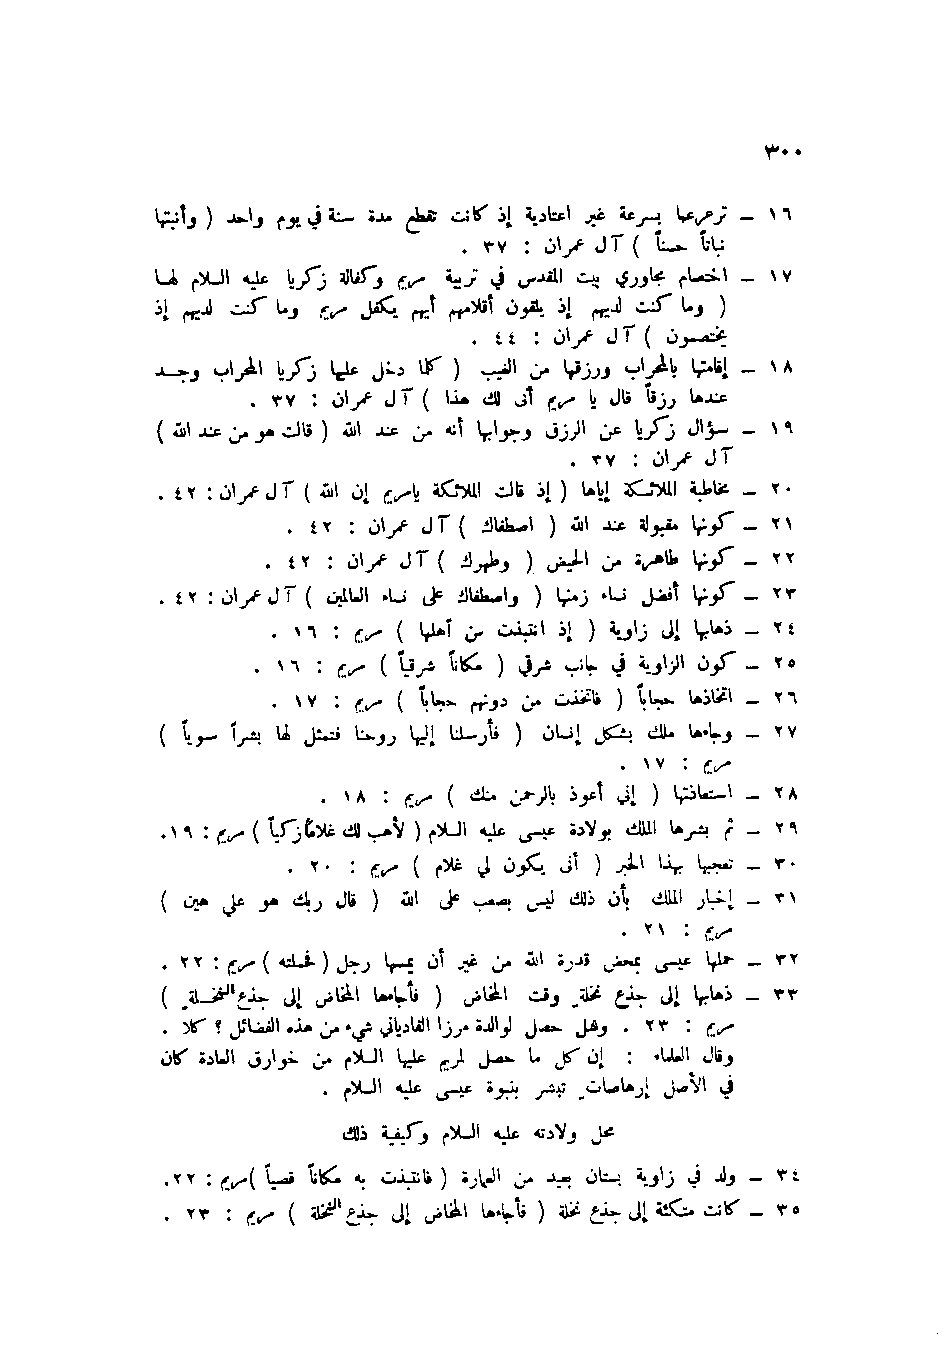 ٣٠٠
١٦ – ترعرعها بسرعة غير اعتادية إذ كانت تقطع مدة سنة في يوم واحد ( وأنبتها
نباتاً حسناً ) آل عمران : ٣٧ .
١٧ – اختصام مجاوري بيت المقدس في تربية مريم وكفالة زكريا عليه السلام لها
( وما كنت لديهم إذ يلقون أقلامهم أيهم يكفل مريم وما كنت لديهم إذ
يختصمون ) آل عمران : ٤٤ .
١٨ – إقامتها بالمحراب ورزقها من الغيب ( كلما دخل عليها زكريا المحراب وجد
عندها رزقاً قال يا مريم أنى لك هذا ) آل عمران : ٣٧ .
١٩ – سؤال زكريا عن الرزق وجوابها أنه من عند الله ( قالت هو من عند الله )
آل عمران : ٣٧ .
٢٠ – مخاطبة الملائكة إياها ( إذ قالت الملائكة يامريم إن الله ) آل عمران : ٤٢ .
٢١ – كونها مقبولة عند الله ( اصطفاك ) آل عمران : ٤٢ .
٢٢ – كونها طاهرة من الحيض ( وطهرك ) آل عمران : ٤٢ .
٢٣ – كونها أفضل نساء زمنها ( واصطفاك على نساء العالمين ) آل عمران : ٤٢ .
٢٤ – ذهابها إلى زاوية ( إذ انتبذت من أهلها ) مريم : ١٦ .
٢٥ – كون الزاوية في جانب شرقي ( مكاناً شرقياً ) مريم : ١٦ .
٢٦ – اتخاذها حجاباً ( فاتخذت من دونهم حجاباً ) مريم : ١٧ .
٢٧ – وجاءها ملك بشكل إنسان ( فأرسلنا إليها روحنا فتمثل لها بشراً سوياً )
مريم : ١٧ .
٢٨ – استعاذتها ( إني أعوذ بالرحمن منك ) مريم : ١٨ .
٢٩ – ثم بشرها الملك بولادة عيسى عليه السلام ( لأهب لك غلاماً زكياً ) مريم : ١٩.
٣٠ – تعجبها بهذا الخبر ( أنى يكون لي غلام ) مريم : ٢٠ .
٣١ – إخبار الملك بأن ذلك ليس بصعب على الله ( قال ربك هو علي هين )
مريم : ٢١ .
٣٢ – حملها عيسى بمحض قدرة الله من غير أن يمسها رجل ( فحملته ) مريم : ٢٢ .
٣٣ – ذهابها إلى جذع نخلة وقت المخاض ( فأجاءها المخاض إلى جذع النخلة )
مريم : ٢٣ . وهل حصل لوالدة مرزا القادياني شيء من هذه الفضائل ؟ كلا .
وقال العلماء : إن كل ما حصل لمريم عليها السلام من خوارق العادة كان
في الأصل إرهاصات تبشر بنبوة عيسى عليه السلام .
محل ولادته عليه السلام وكيفية ذلك
٣٤ – ولد في زاوية بستان بعيد من العمارة ( فانتبذت به مكاناً قصياً ) مريم : ٢٢.
٣٥ – كانت متكئة إلى جذع نخلة ( فأجاءها المخاض إلى جذع النخلة ) مريم : ٢٣ .